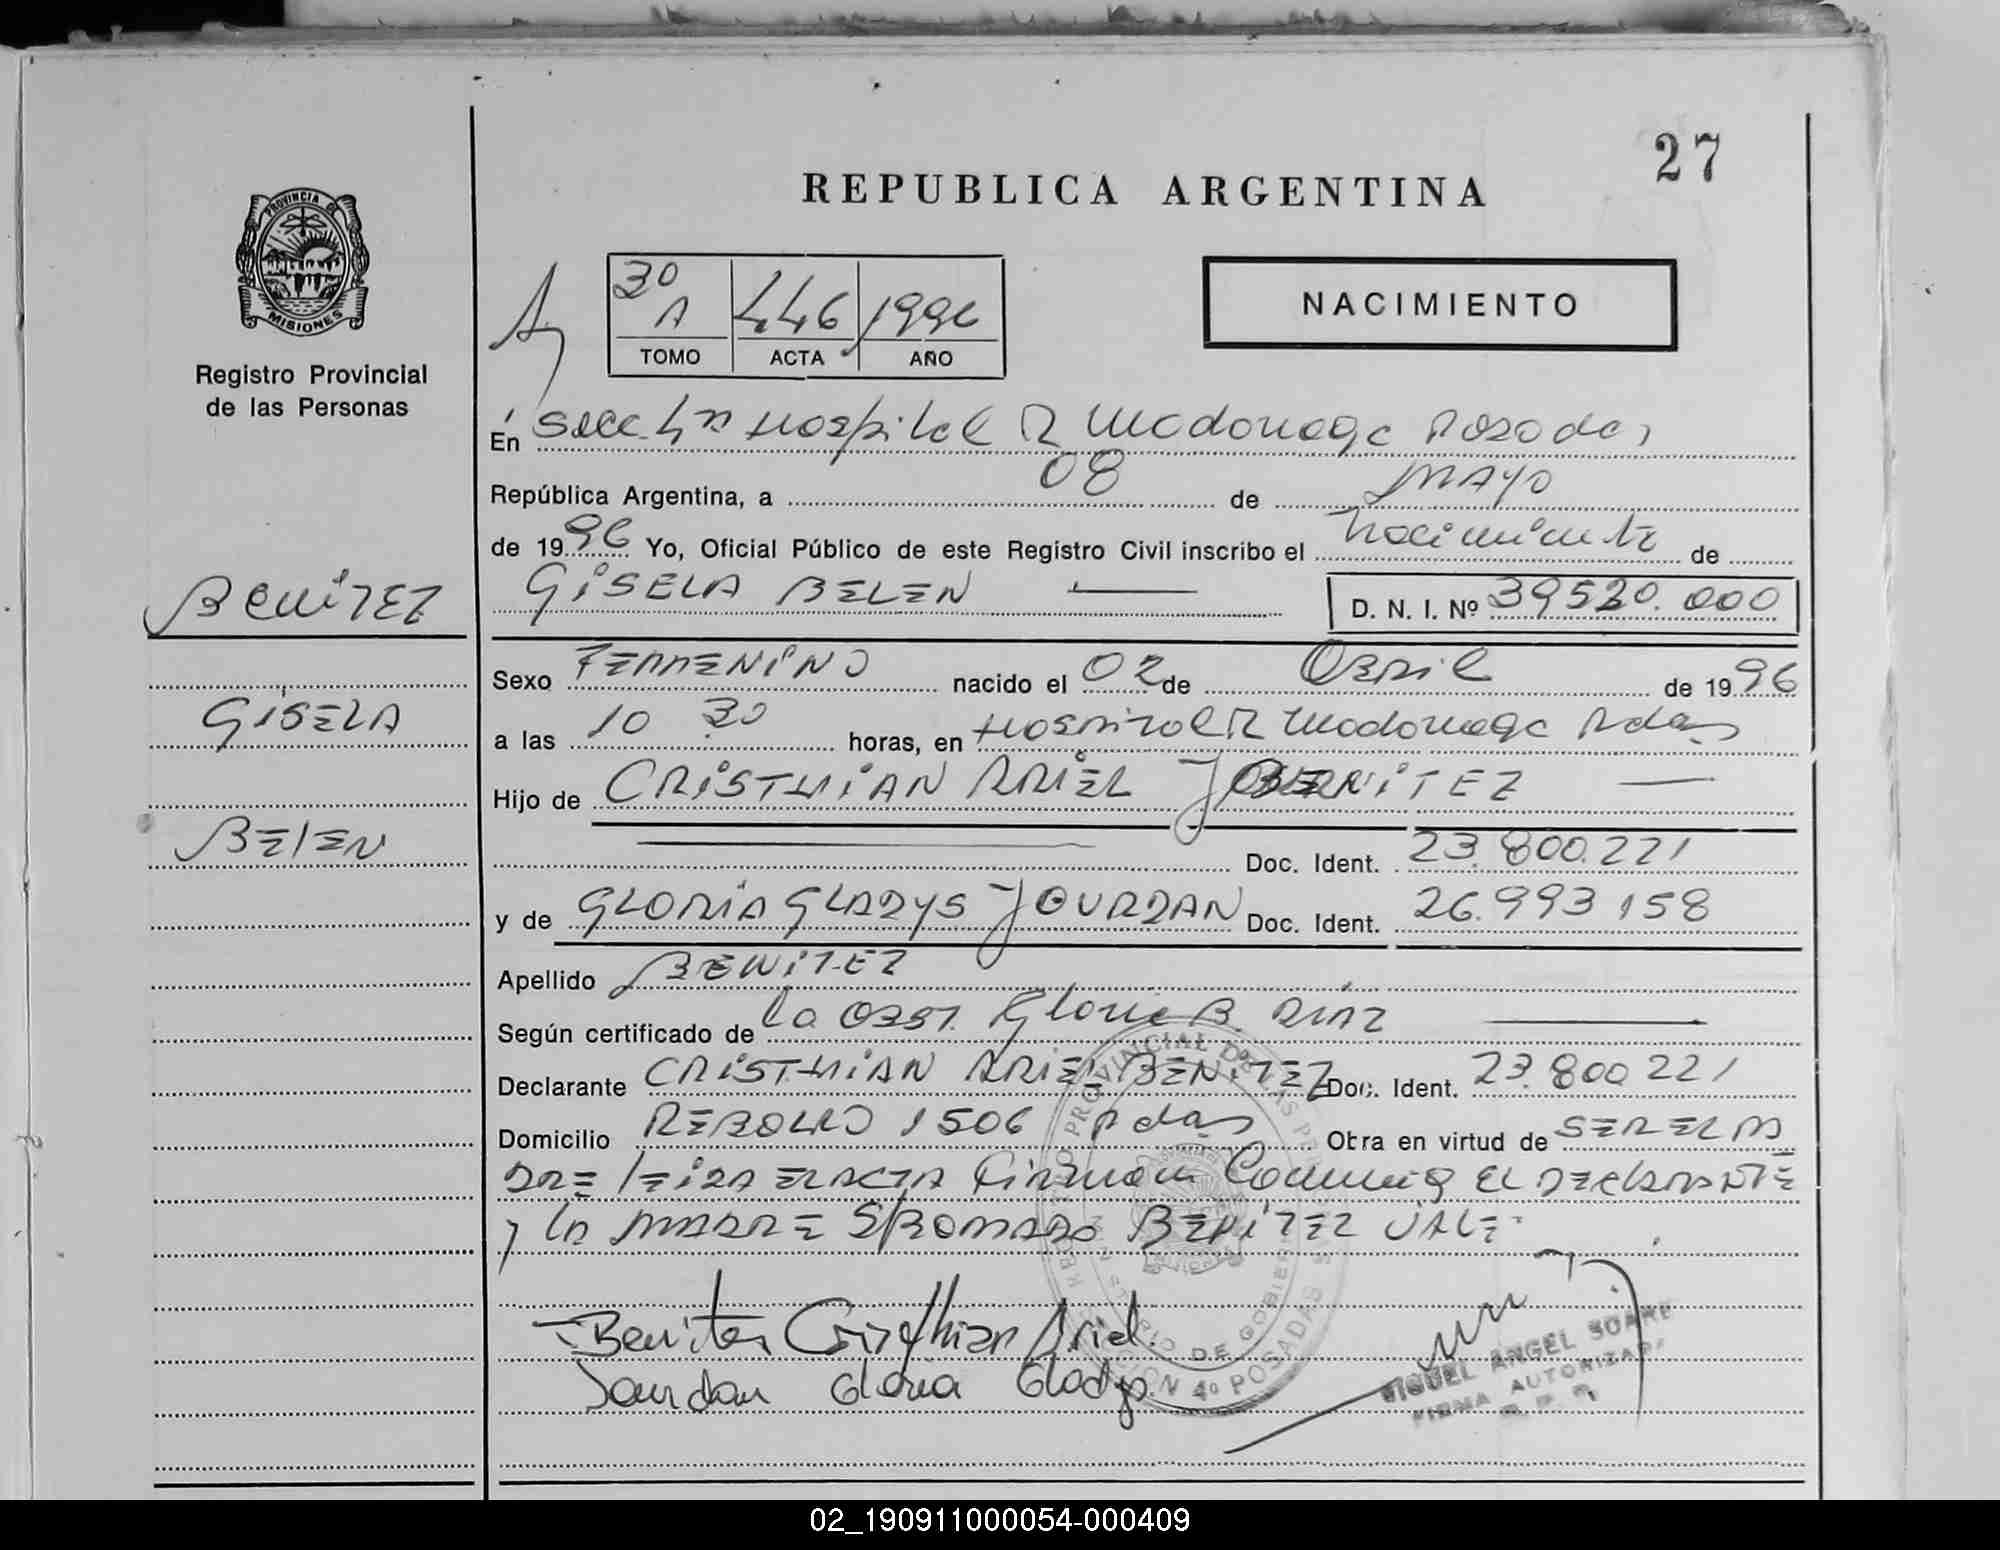 27
REPUBLICA ARGENTINA
PROVINCIA DE
MISIONES
Registro Provincial
de las Personas
3º A 446 1996
TOMO ACTA AÑO
NACIMIENTO
En Secc 4ta Hospital R Madariaga Posadas
República Argentina, a 08 de MAYO
de 1996 Yo, Oficial Público de este Registro Civil inscribo el nacimiento de
GISELA BELEN D. N. I. Nº 39520.000
BENITEZ
Sexo FEMENINO nacido el 02 de ABRIL de 1996
GISELA
a las 10 30 horas, en HOSPITAL R Madariaga Pdas
Hijo de CRISTHIAN ARIEL BENITEZ
BELEN
Doc. Ident. 23.800.221
y de GLORIA GLADYS JOURDAN Doc. Ident. 26.993 158
Apellido BENITEZ
Según certificado de la OBST. Gloria B. DIAZ
Declarante CRISTHIAN ARIEL BENITEZ Doc. Ident. 23.800 221
Domicilio REBOLLO 1506 Pdas Obra en virtud de SER EL PA
DRE LEIDA EL ACTA Firman Conmigo EL DECLARANTE
y la MADRE S/BORRADO BENITEZ VALE
Benitez Cristhian Ariel.
Jourdan Gloria Gladys.
REGISTRO PROVINCIAL DE LAS PERSONAS
MINISTERIO DE GOBIERNO
SECCION 4º POSADAS
MIGUEL ANGEL SUAREZ
FIRMA AUTORIZADA
R. P. P.
02_190911000054-000409